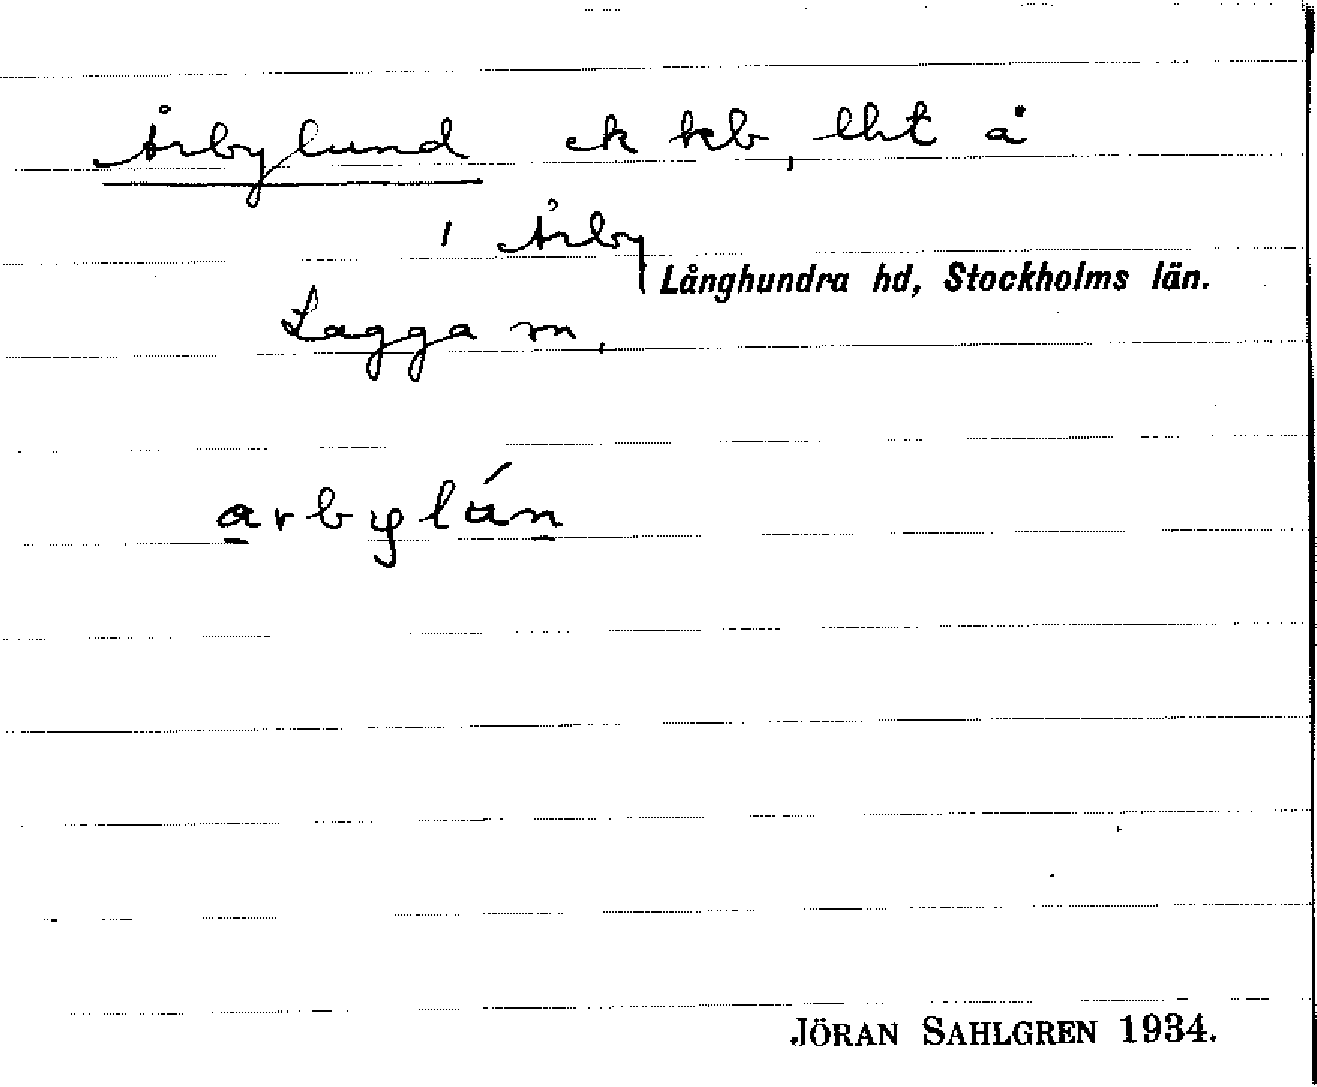 Årbylund ek kb, lht å
1 Årby
Långhundra hd, Stockholms län.
Lagga sn,
arbylún
JÖRAN SAHLGREN 1934.